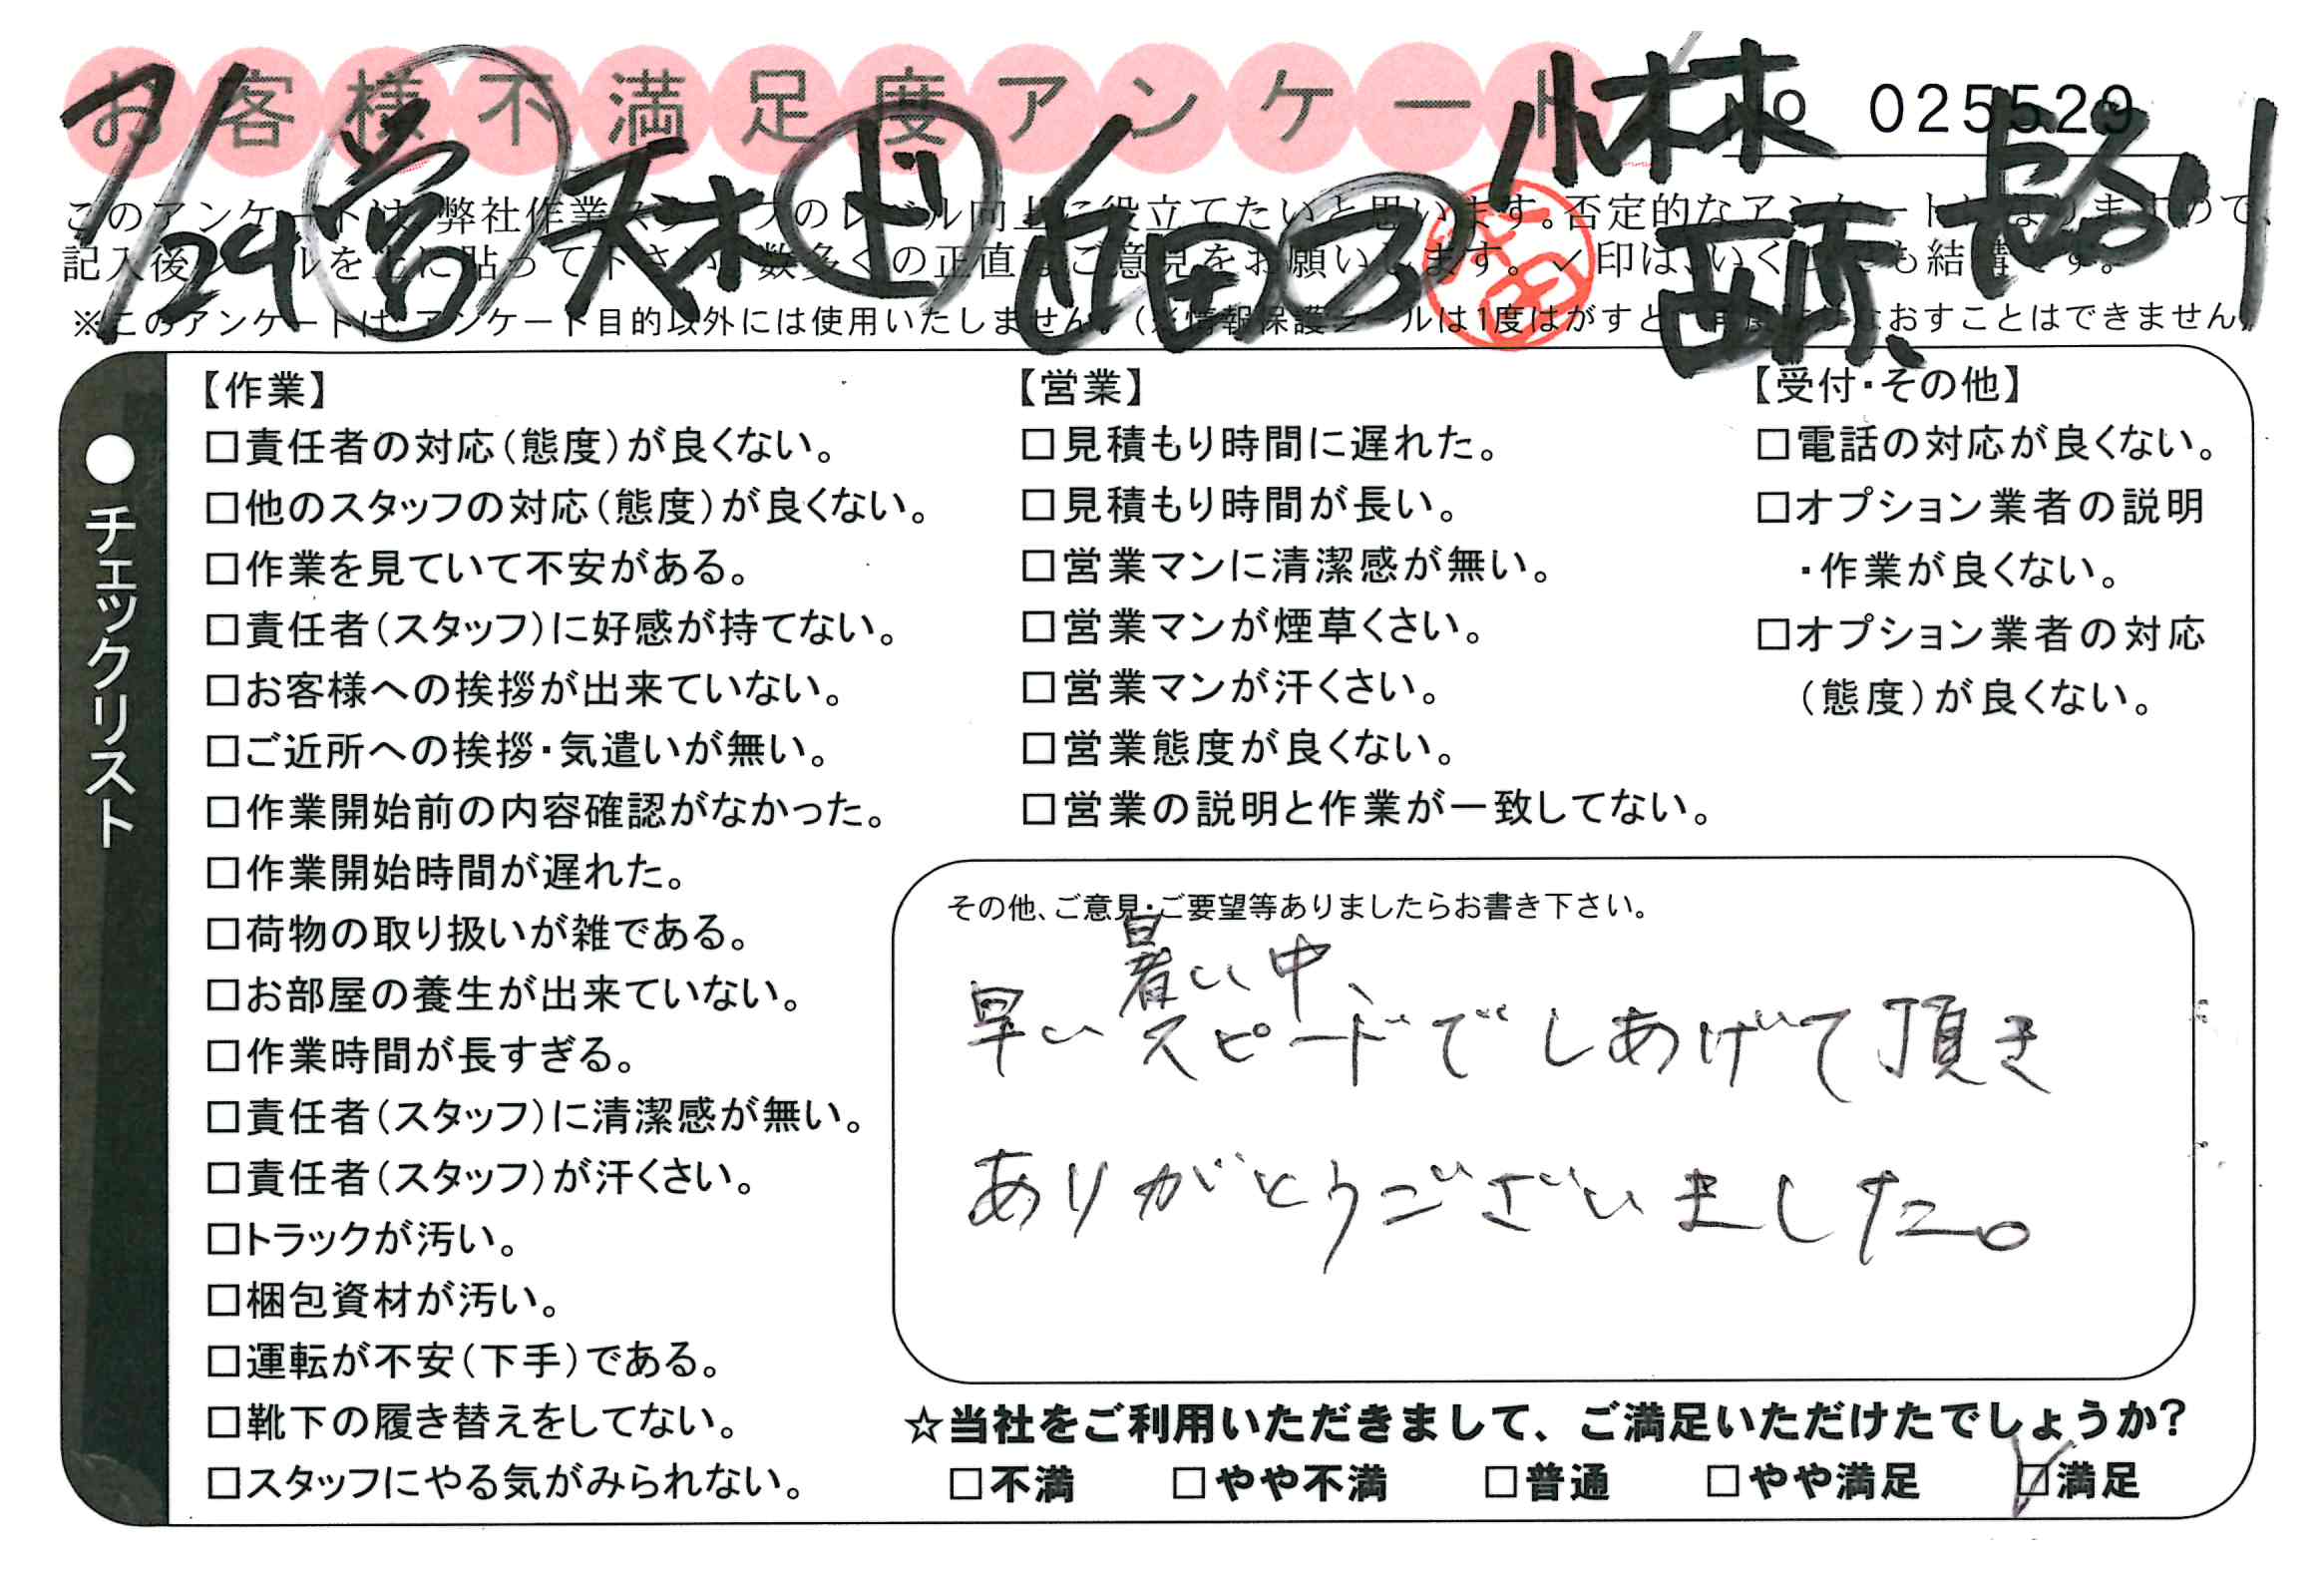 お客様不満足度アンケート
No 025529
7/24 営 天木 ド 上田 フ 小林 長谷川
このアンケートは、弊社作業スタッフのレベル向上に役立てたいと思います。否定的なアンケートになりますので、
記入後シールを上に貼って下さい。数多くの正直なご意見をお願いします。✓印は、いくつでも結構です。
※このアンケートは、アンケート目的以外には使用いたしません。(※情報保護シールは1度はがすと、再度はりなおすことはできません)
●チェックリスト
【作業】
□責任者の対応(態度)が良くない。
□他のスタッフの対応(態度)が良くない。
□作業を見ていて不安がある。
□責任者(スタッフ)に好感が持てない。
□お客様への挨拶が出来ていない。
□ご近所への挨拶・気遣いが無い。
□作業開始前の内容確認がなかった。
□作業開始時間が遅れた。
□荷物の取り扱いが雑である。
□お部屋の養生が出来ていない。
□作業時間が長すぎる。
□責任者(スタッフ)に清潔感が無い。
□責任者(スタッフ)が汗くさい。
□トラックが汚い。
□梱包資材が汚い。
□運転が不安(下手)である。
□靴下の履き替えをしてない。
□スタッフにやる気がみられない。
【営業】
□見積もり時間に遅れた。
□見積もり時間が長い。
□営業マンに清潔感が無い。
□営業マンが煙草くさい。
□営業マンが汗くさい。
□営業態度が良くない。
□営業の説明と作業が一致してない。
【受付・その他】
□電話の対応が良くない。
□オプション業者の説明
・作業が良くない。
□オプション業者の対応
(態度)が良くない。
その他、ご意見・ご要望等ありましたらお書き下さい。
暑い中、
早いスピードでしあげて頂き
ありがとうございました。
☆当社をご利用いただきまして、ご満足いただけたでしょうか?
□不満 □やや不満 □普通 □やや満足 ☑満足